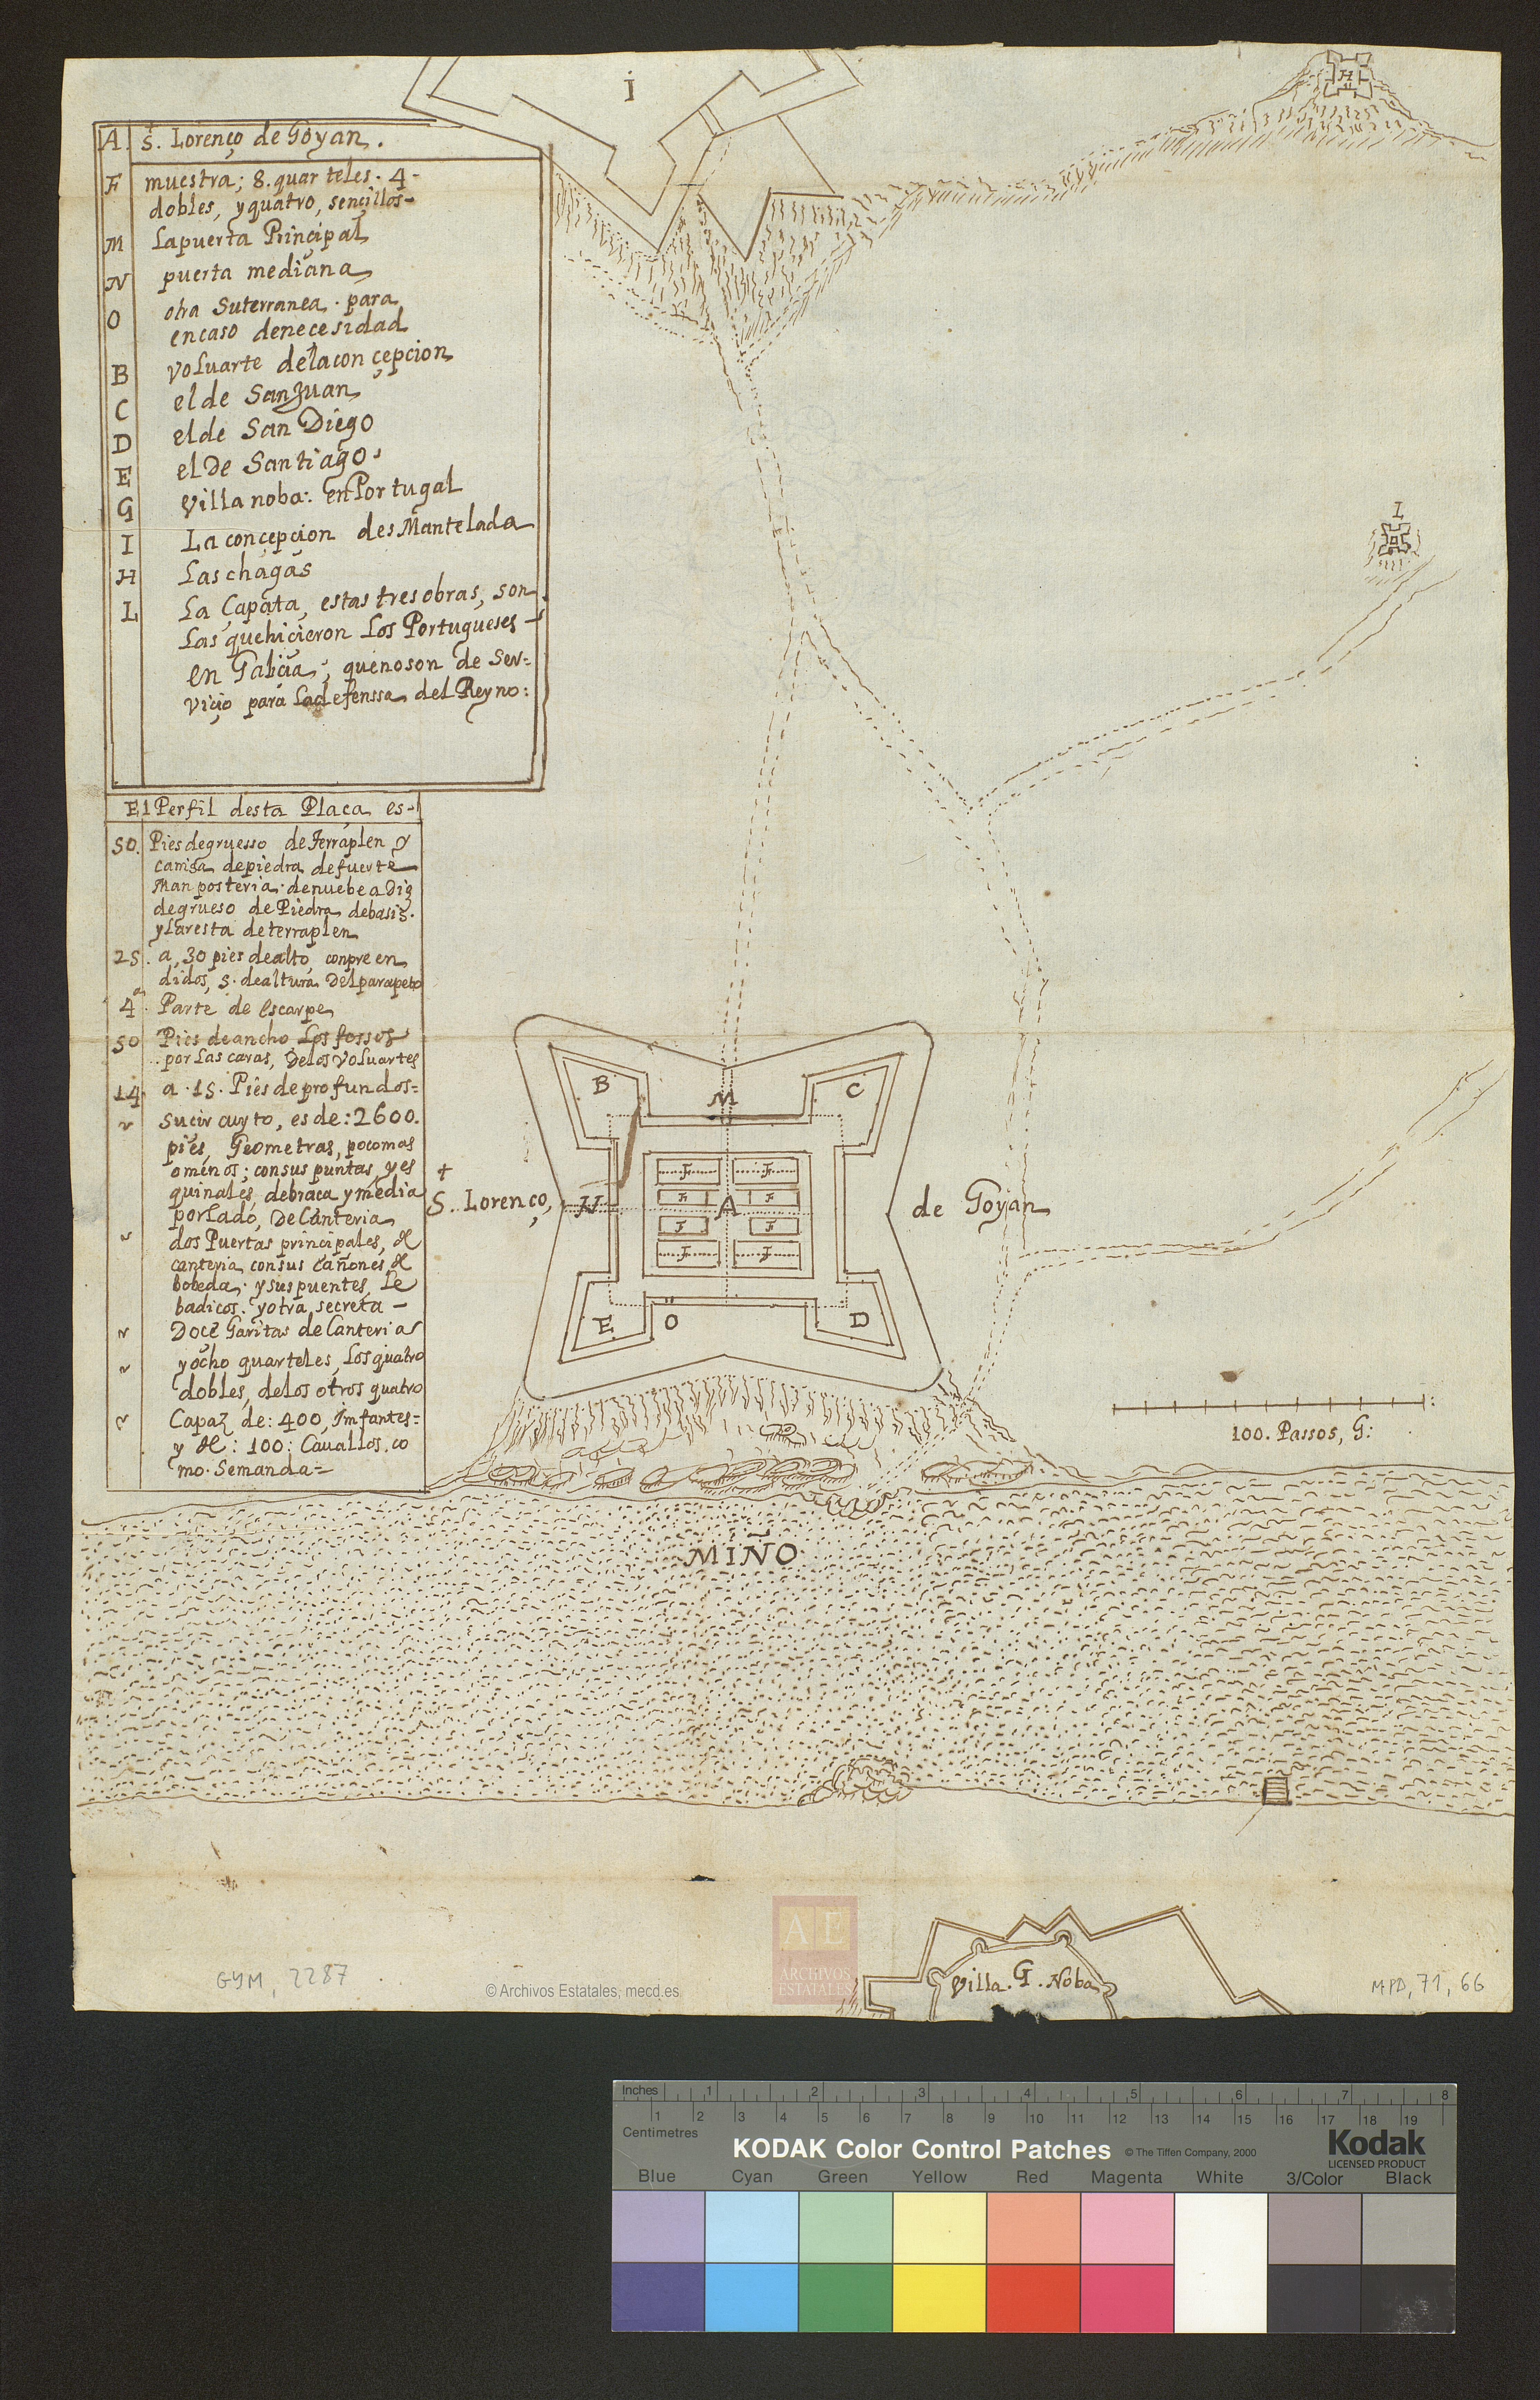 A. S. Lorenço de Goyan.
F muestra; 8. quarteles. 4-
dobles, y quatro, sençillos-
M La puerta Prinçipal
N puerta mediana
O otra Suterranea. para
encaso denecesidad
B voluarte dela conçepcion
C el de San Juan
D elde San Diego
E el De Santiago.
G Villa noba: en Portugal
I La conçepcion desMantelada
H Las chagas
L La Çapata, estas tres obras, son
Las quehiçieron Los Portugueses-
en Galiçia; quenoson de Ser=
viçio para Ladefenssa del Reyno:
El Perfil desta Plaça es-
50. Pies degruesso de Terraplen y
camisa depiedra defuerte
Manposteria. denuebe a Diz
degrueso de Piedra debasis.
y Laresta deterraplen
25. a, 30 pies dealto, conpreen
didos, 5. dealtura Del parapeto
4.a Parte de escarpe
50 Pies deancho Los fossos
por Las caras, DeLos VoLuartes
14. a. 15. Pies de profundos=
Sucircuyto, es de: 2600.
pies, Geometras, pocomas
omenos; consus puntas, y es
quinales, debraça y media
porLado, De Canteria
dos Puertas principales, de
canteria consus cañones, de
bobeda. y sus puentes Le
badicos. y otra secreta -
Doce Garitas de Canterias
y ocho quarteles, Los quatro
dobles, delos otros quatro
Capaz de: 400, Imfantes=
y de: 100: Cauallos. co
mo. Semanda=
i
H
L
B
M
C
F F
F F
S. Lorenço, N A de Goyan
F F
F F
E O D
100. Passos, G:
MIÑO
Villa. G. Noba
GYM, 2287
© Archivos Estatales, mecd.es
AE
ARCHIVOS
ESTATALES
MPD, 71, 66
Inches 1 2 3 4 5 6 7 8
1 2 3 4 5 6 7 8 9 10 11 12 13 14 15 16 17 18 19
Centimetres
KODAK Color Control Patches © The Tiffen Company, 2000 Kodak
LICENSED PRODUCT
Blue Cyan Green Yellow Red Magenta White 3/Color Black